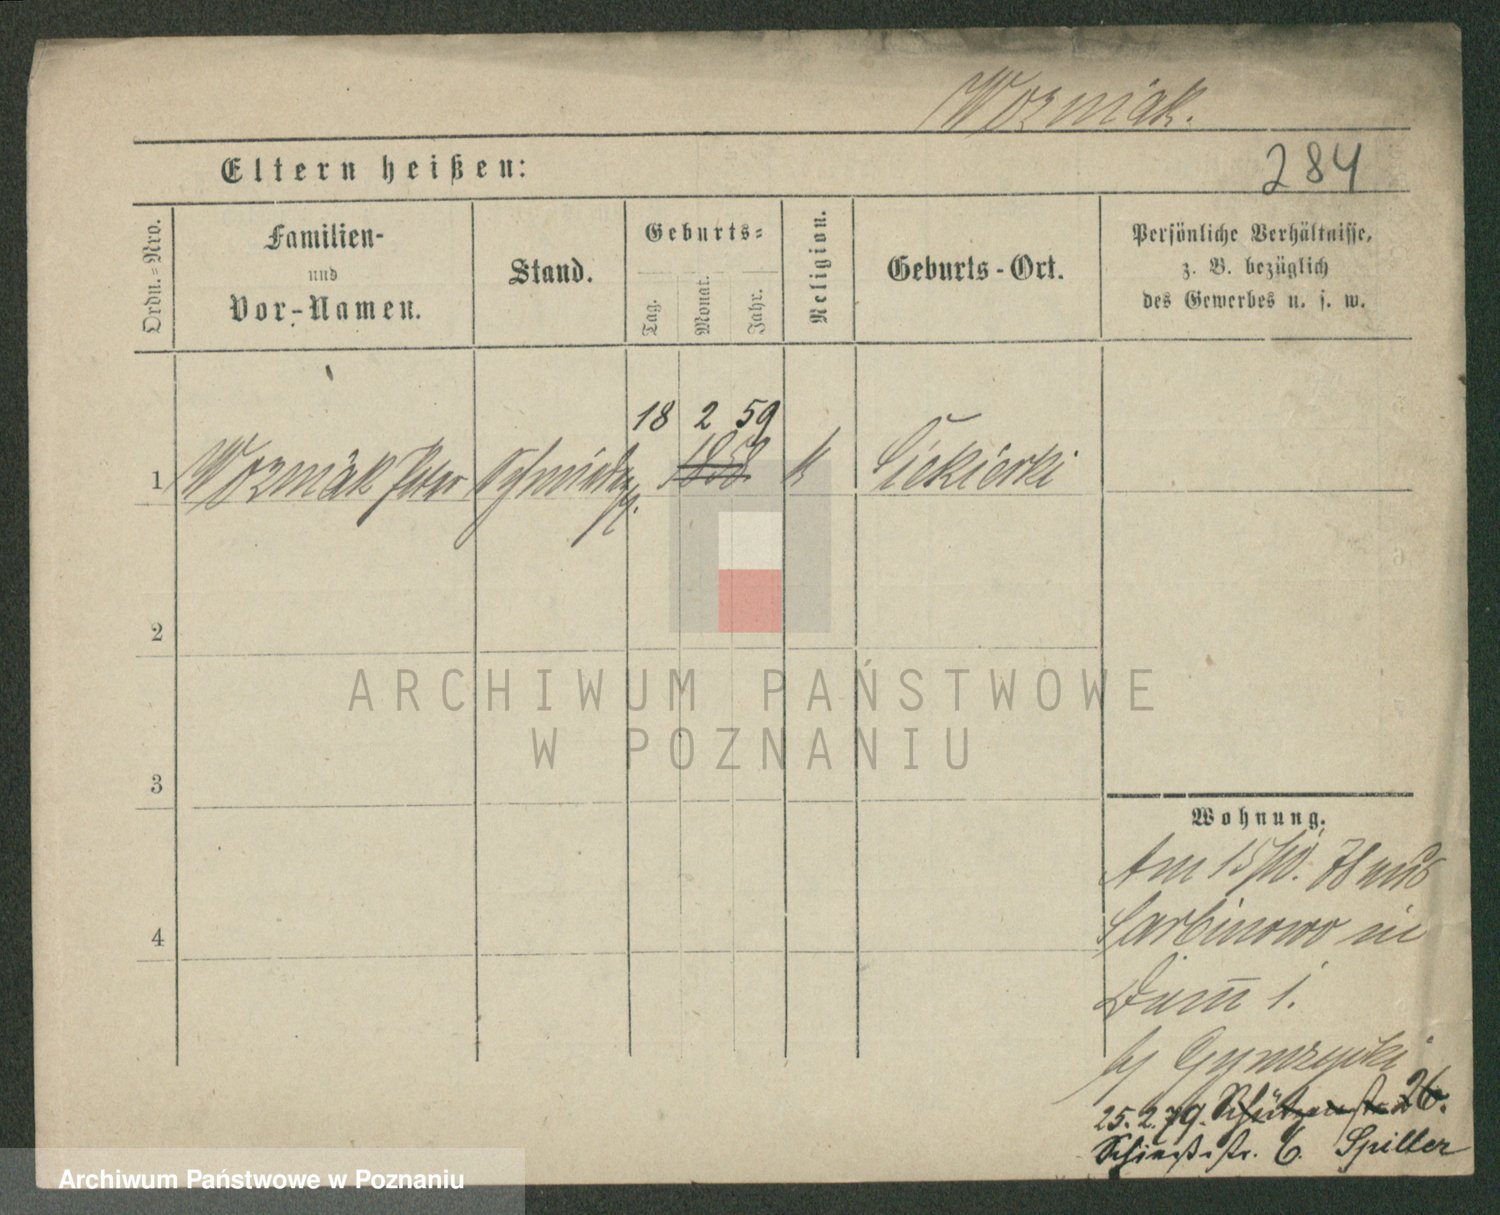 Wozniak.
Eltern heißen:
284
Ordn.=Nro.
Familien-
und
Vor-Namen.
Stand.
Geburts=
Tag.
Monat.
Jahr.
Religion.
Geburts-Ort.
Persönliche Verhältnisse,
z. B. bezüglich
des Gewerbes u. s. w.
18 2 59
1 Wozniak Peter 1858 k Siekierki
2
ARCHIWUM PAŃSTWOWE
W POZNANIU
3
Wohnung.
Am 15/10. 78 aus
Sarbinowo in
4
Dam̄ 1.
25.2.79. Schützenstr. 26.
Schießstr. 6. Spiller
Archiwum Państwowe w Poznaniu